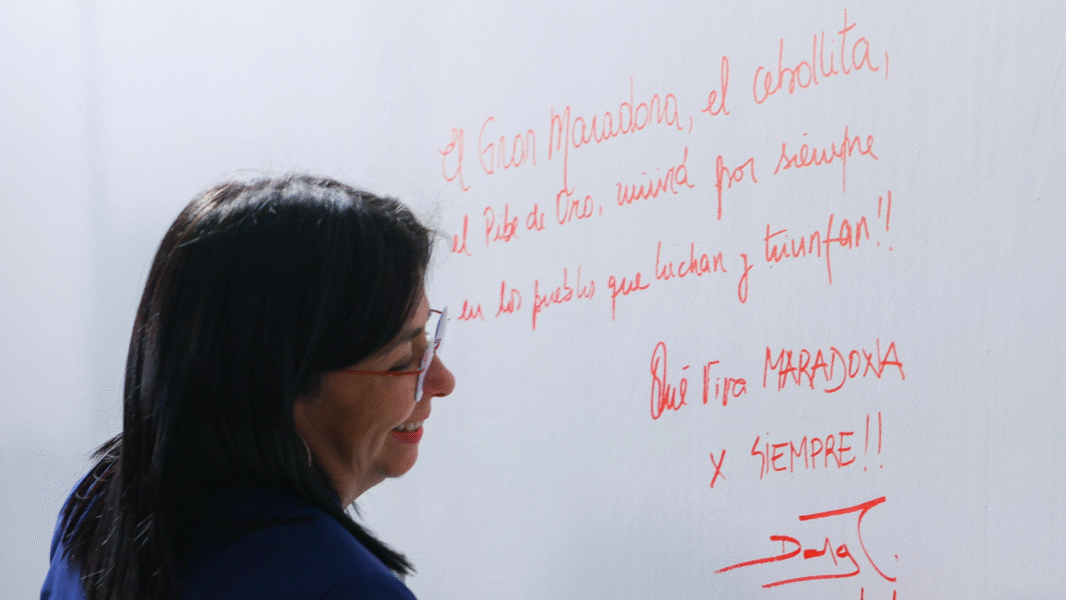 El Gran Maradona, el cebollita,
el Pibe de Oro, vivirá por siempre
en los pueblos que luchan y triunfan!!
Qué Viva MARADONA
X SIEMPRE!!